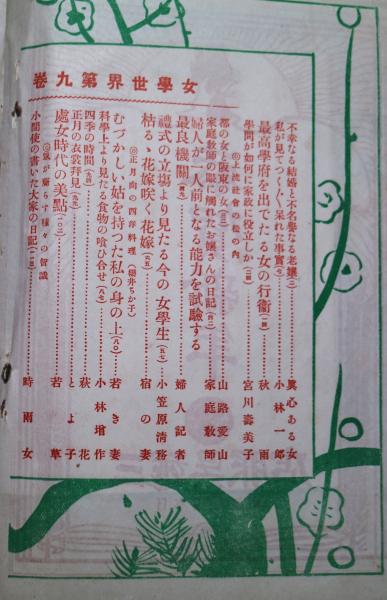 女學世界第九卷
不幸なる結婚と不名譽なる老孃(二) 眞心ある女
私が見てつく〴〵呆れた事實(七) 小林一郎
最高學府を出でたる女の行衞(一四) 秋雨
學問が如何に家政に役立しか(二四) 宮川壽美子
◎上流社會の松の內
都の女と阪東の女(三三) 山路愛山
家庭敎師の眼に觸れたお孃さんの日記(四二) 家庭敎師
婦人が一人前となる能力を試驗する
最良機關(四九) 婦人記者
禮式の立場より見たる今の女學生(五七) 小笠原淸務
枯るゝ花嫁咲く花嫁(六五) 宿の妻
◎正月向の四洋料理(櫻井ちか子)
むづかしい姑を持つた私の身の上(八〇) 若き妻
科學上より見たる食物の喰ひ合せ(八七) 小林增作
四季の時間(九四) 萩花
正月の衣裳拜見(九九) とよ子
處女時代の美點(一〇二) 若草
◎鼠が齎らす種々の智識
小間使の書いた大家の日記(一一三) 時雨女